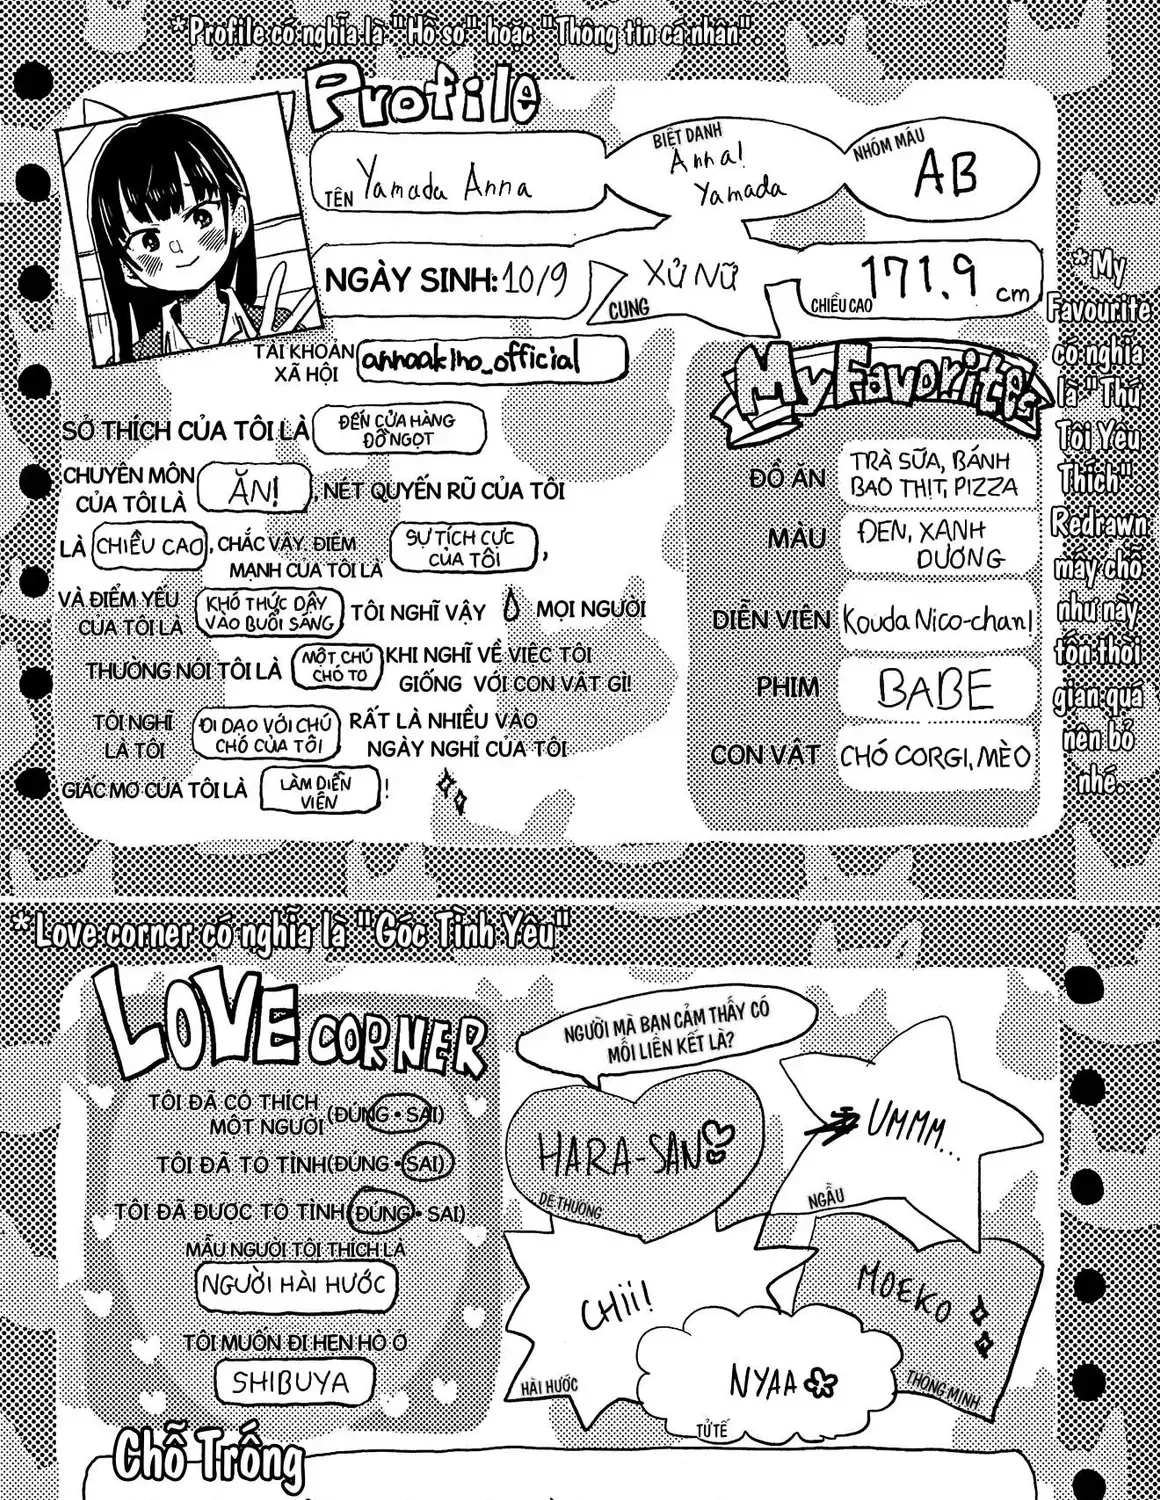 *Profile có nghĩa là "Hồ sơ" hoặc "Thông tin cá nhân".
Profile
TÊN Yamada Anna
BIỆT DANH
Anna!
Yamada
NHÓM MÁU
AB
NGÀY SINH: 10/9
XỬ NỮ
CUNG
171.9 cm
CHIỀU CAO
TÀI KHOẢN
XÃ HỘI
annaakiho_official
SỞ THÍCH CỦA TÔI LÀ ĐẾN CỬA HÀNG
ĐỒ NGỌT
CHUYÊN MÔN
CỦA TÔI LÀ ĂN!, NÉT QUYẾN RŨ CỦA TÔI
LÀ CHIỀU CAO, CHẮC VẬY. ĐIỂM
MẠNH CỦA TÔI LÀ SỰ TÍCH CỰC
CỦA TÔI,
VÀ ĐIỂM YẾU
CỦA TÔI LÀ KHÓ THỨC DẬY
VÀO BUỔI SÁNG TÔI NGHĨ VẬY MỌI NGƯỜI
THƯỜNG NÓI TÔI LÀ MỘT CHÚ
CHÓ TO KHI NGHĨ VỀ VIỆC TÔI
GIỐNG VỚI CON VẬT GÌ!
TÔI NGHĨ
LÀ TÔI ĐI DẠO VỚI CHÚ
CHÓ CỦA TÔI RẤT LÀ NHIỀU VÀO
NGÀY NGHỈ CỦA TÔI
GIẤC MƠ CỦA TÔI LÀ LÀM DIỄN
VIÊN !
My Favorites
ĐỒ ĂN TRÀ SỮA, BÁNH
BAO THỊT, PIZZA
MÀU ĐEN, XANH
DƯƠNG
DIỄN VIÊN Kouda Nico-chan!
PHIM BABE
CON VẬT CHÓ CORGI, MÈO
*My
Favourite
có nghĩa
là "Thú
Tôi Yêu
Thích"
Redrawn
mấy chỗ
như này
tốn thời
gian quá
nên bỏ
nhé.
*Love corner có nghĩa là "Góc Tình Yêu"
LOVE CORNER
TÔI ĐÃ CÓ THÍCH
MỘT NGƯỜI (ĐÚNG • SAI)
TÔI ĐÃ TỎ TÌNH (ĐÚNG • SAI)
TÔI ĐÃ ĐƯỢC TỎ TÌNH (ĐÚNG • SAI)
MẪU NGƯỜI TÔI THÍCH LÀ
NGƯỜI HÀI HƯỚC
TÔI MUỐN ĐI HẸN HÒ Ở
SHIBUYA
NGƯỜI MÀ BẠN CẢM THẤY CÓ
MỐI LIÊN KẾT LÀ?
HARA-SAN
DỄ THƯƠNG
UMMM...
NGẦU
CHII!
HÀI HƯỚC
MOEKO
THÔNG MINH
NYAA
TỬ TẾ
Chỗ Trống